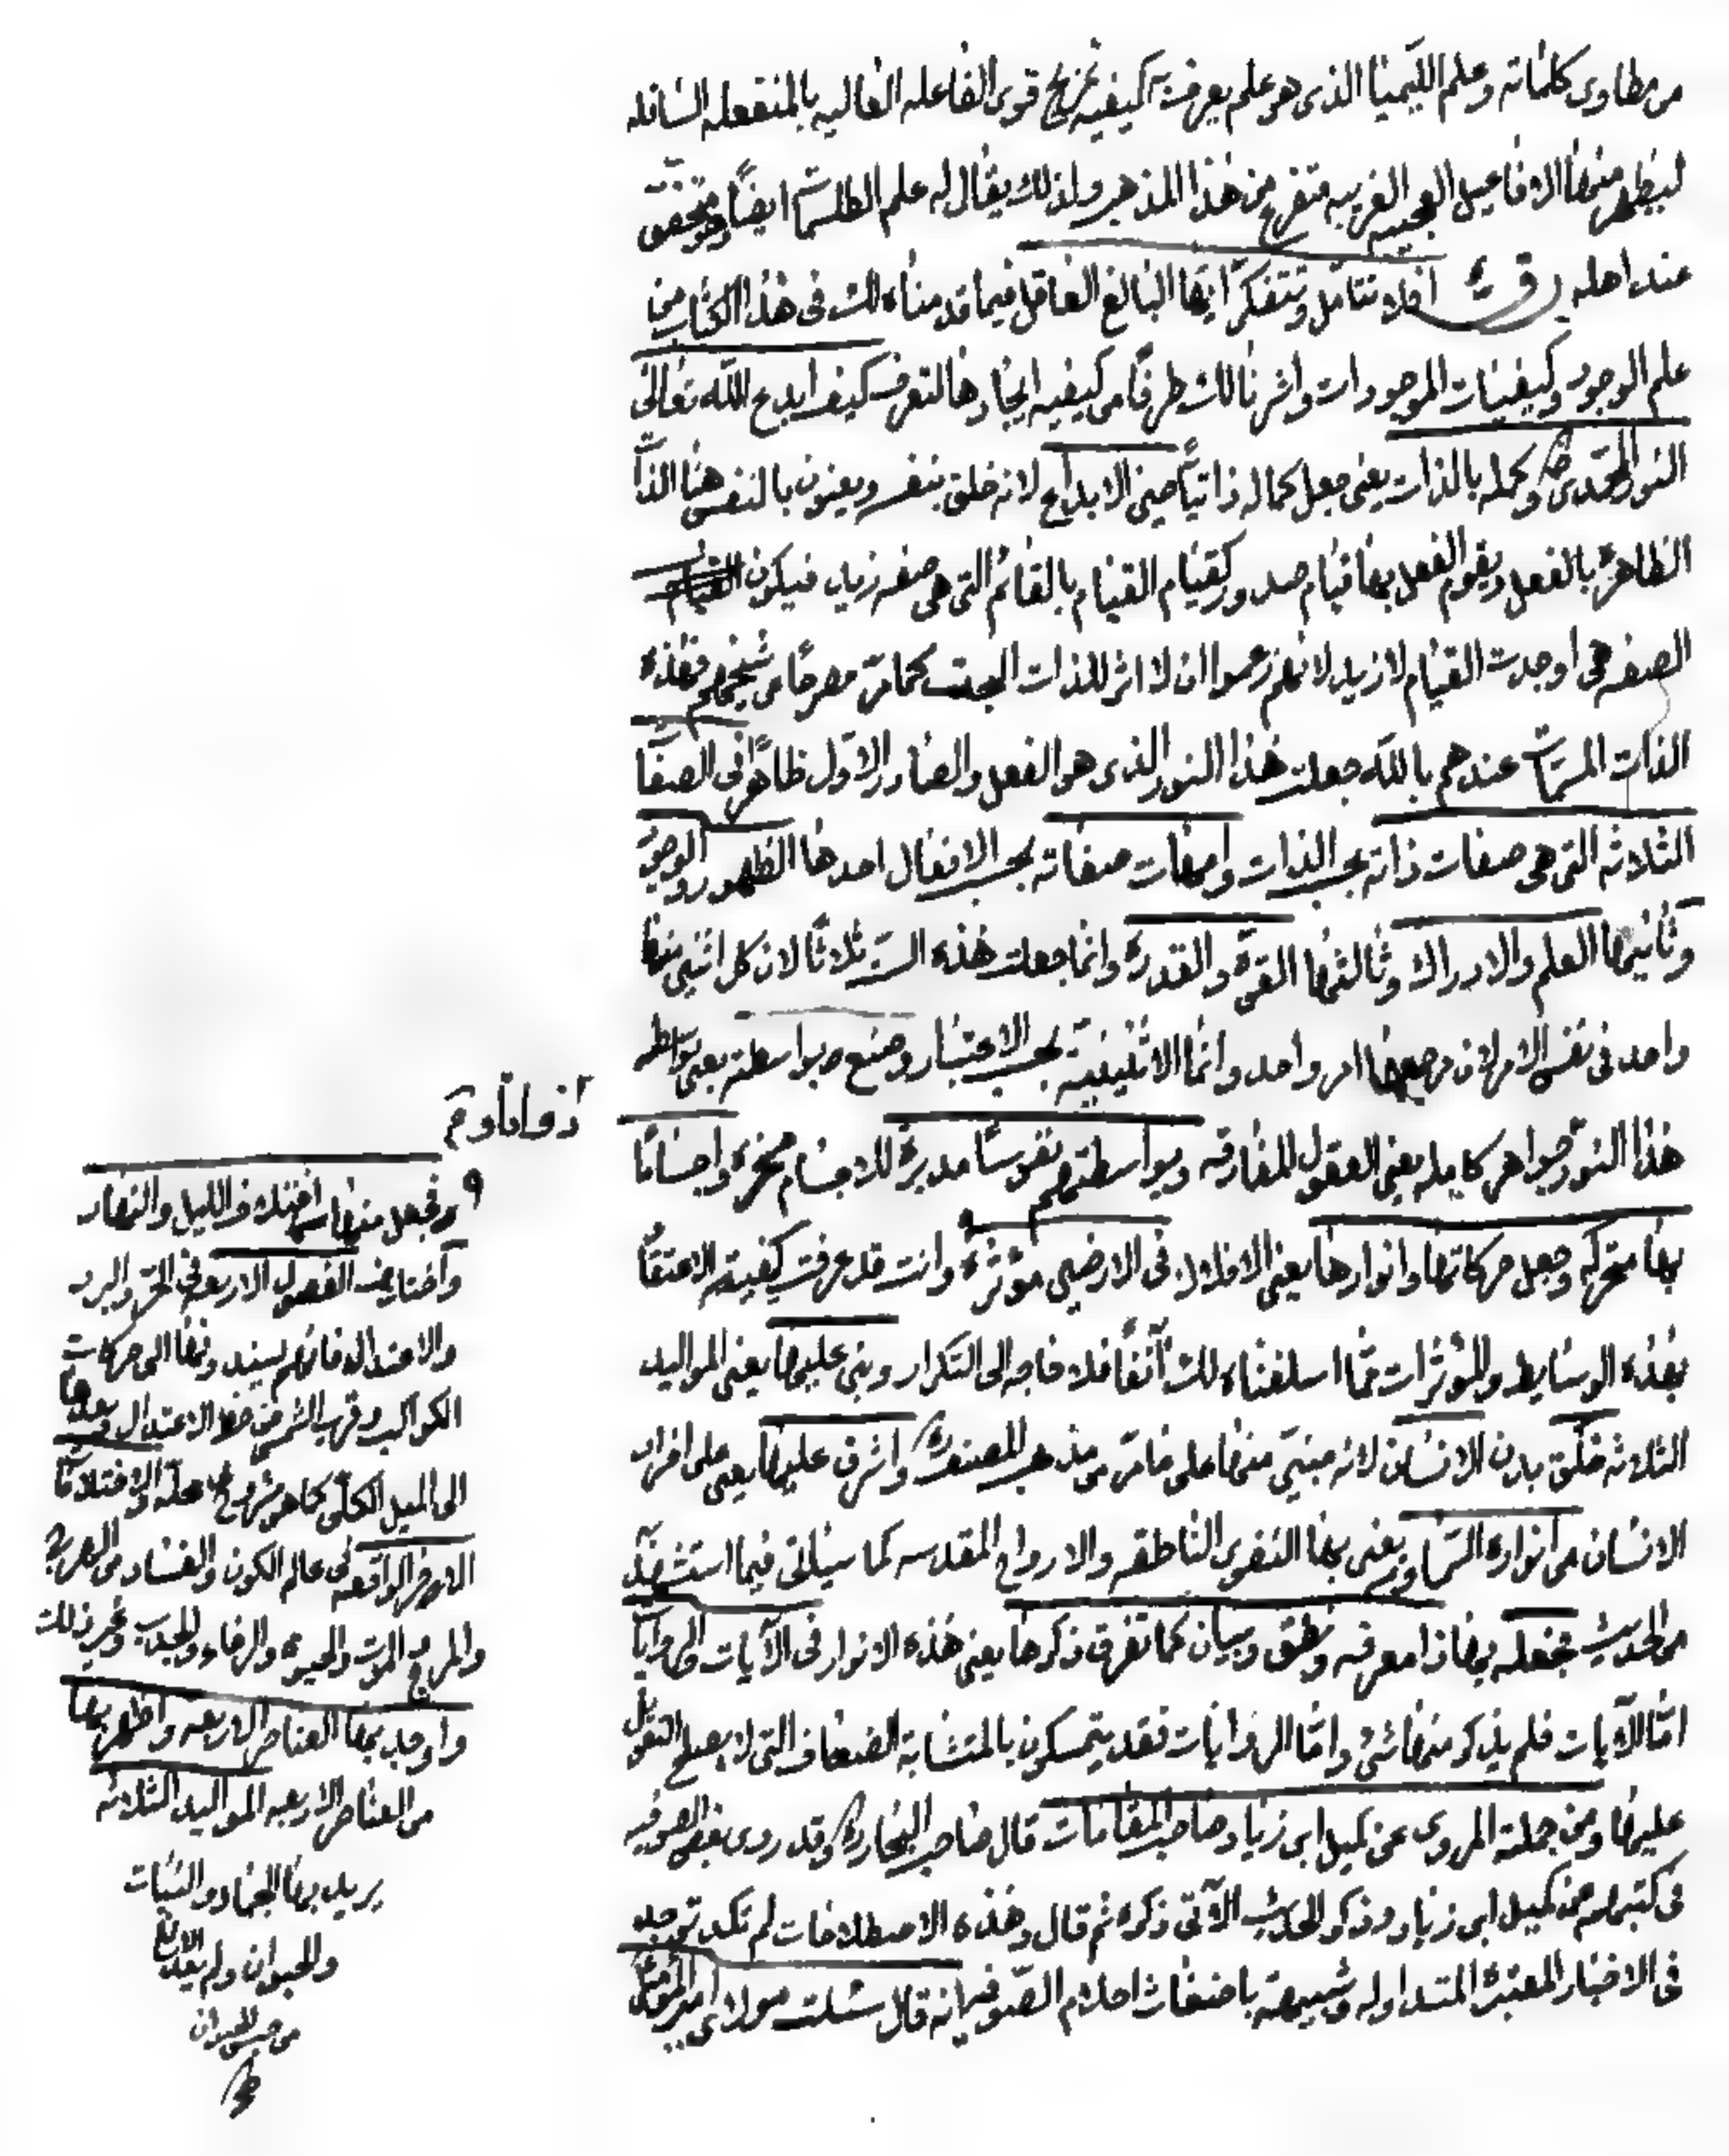 من مطاوى كلماته وعلم الليميا الذى هو علم يعرف به كيفيه تمزيج قوى الفاعله العاليه بالمنفعله السافله
ليظهر منها الافاعيل العجيبه الغريبه متفرع من هذا المذهب ولذلك يقال له علم الطلسمات ايضا وهو متحقق
عند اهله افلا تتامل وتتفكر ايها البالغ العاقل فيما قدمناه لك فى هذا الكتاب من
علم الوجود وكيفيات الموجودات واشرنا لك طرفا من كيفيه ايجادها لتعرف كيف ابدع الله تعالى
النور المحمدى وكمله بالذات يعنى جعل كماله ذاتيا حين الابداع لانه خلق بنفسه ويعنون بالنفس هنا الذات
الظاهرة بالفعل ويقوم الفعل بها قيام صدور كقيام القيام بالقائم التى هى صفه زيد فيكون
الصفه هى اوجدت القيام لا زيد لانهم زعموا ان لا اثر للذات البحت كما مر مصرحا من شيخهم فهذه
الذات المسماة عندهم بالله جعلت هذا النور الذى هو الفعل والصادر الاول ظاهرا فى الصفات
الثلاثه التى هى صفات ذاته بحسب الذات وامهات صفاته بحسب الافعال احدها الظهور والوجود
وثانيها العلم والادراك وثالثها القوة والقدرة وانما جعلت هذه الستة ثلاثا لان كل اثنين منها
واحد فى نفس الامر لان مرجعهما امر واحد وانما الاثنينية بحسب الاعتبار وصنع بواسطته يعنى بواسطه
هذا النور جواهر كامله يعنى العقول المفارقه وبواسطتهم نفوسا مدبرة للاجسام محركة واجساما
بها متحركه وجعل حركاتها وانوارها يعنى الافلاك فى الارضين مؤثرة وانت قد عرفت كيفيته الاعتقاد
بهذه الوسايط والمؤثرات مما اسلفناه لك آنفا فلا حاجه الى التكرار وبنى عليها يعنى المواليد
الثلاثه خلق بدن الانسان لانه مبنى منها على ما مر من مذهب المصنف واشرق عليها يعنى على افراد
الانسان من انواره السماويه يعنى بها النفوس الناطقه والارواح المقدسه كما سياتى فيما استشهد
من الحديث فجعله بها ذا معرفه ونطق وبيان كما تفرق ذكرها يعنى هذه الانوار فى الآيات والروايات
اما الآيات فلم يذكر منها شئ واما الروايات فقد يتمسكون بالمتشابه الضعاف التى لا يصلح التعويل
عليها ومن جمله المروى عن كميل ابن زياد صاحب المقامات قال صاحب البحار وقد روى بعض الصوفيه
فى كتبهم عن كميل ابن زياد وذكر الحديث الآتى ذكره ثم قال وهذه الاصطلاحات لم تكد توجد
فى الاخبار المعتبرة المتداوله وشبيهة باضغاث احلام الصوفيه انه قال سئلت مولاى امير المؤمنين
وجعل منها اختلاف الليل والنهار
واختلاف الفصول الاربعه فى الحر والبرد
والاعتدال فانهم يسندونها الى حركات
الكواكب وقرب الشمس من خط الاعتدال وبعدها
الى الميل الكلى كما هو مشروح فى محله والاختلافات
الاخر الواقعه فى عالم الكون والفساد من الهرج
والمرج والموت والحيوة والرخاء والجدب وغير ذلك
واوجد بها العناصر الاربعه واظهر بها
من العناصر الاربعه المواليد الثلاثه
يريد بها الجماد والنبات
والحيوان ولم يعد الرابع
من جنس الحيوان